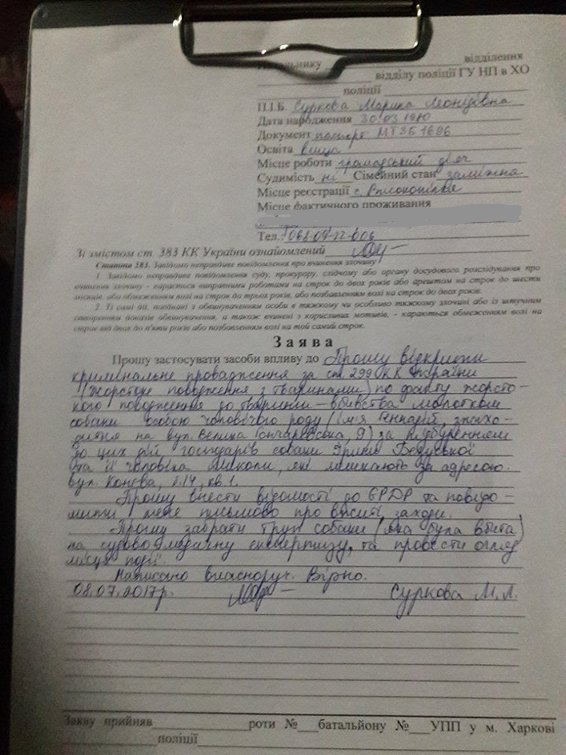 Начальнику відділення
відділу поліції ГУ НП в ХО
поліції
П.І.Б Суркова Марина Леонідівна
Дата народження 30.03.1970
Документ паспорт МТ 361686
Освіта вища
Місце роботи громадський діяч
Судимість ні Сімейний стан заміжня
Місце реєстрації с.
Місце фактичного проживання
Тел.
Зі змістом ст. 383 КК України ознайомлений
Стаття 383. Завідомо неправдиве повідомлення про вчинення злочину
1. Завідомо неправдиве повідомлення суду, прокурору, слідчому або органу досудового розслідування про
вчинення злочину - карається виправними роботами на строк до двох років або арештом на строк до шести
місяців, або обмеженням волі на строк до трьох років, або позбавленням волі на строк до двох років.
2. Ті самі дії, поєднані з обвинуваченням особи в тяжкому чи особливо тяжкому злочині або із штучним
створенням доказів обвинувачення, а також вчинені з корисливих мотивів, - караються обмеженням волі на
строк від двох до п'яти років або позбавленням волі на той самий строк.
Заява
Прошу застосувати засоби впливу до Прошу відкрити
кримінальне провадження за ст. 299 КК України
(жорстоке поводження з тваринами) по факту жорсто-
кого поводження до тварини – вбивства молотком
собаки особою чоловічого роду (імя Геннадій, знахо-
диться на вул. Велика Гончарівська, 9) за підбуренням
до цих дій господарів собаки Ірини
та її чоловіка Миколи, які мешкають за адресою:
вул. Конєва, б.14, кв.1.
Прошу внести відомості до ЄРДР та повідо-
мити мене письмово про вжиті заходи.
Прошу забрати труп собаки (яка була вбита)
на судово-медичну експертизу, та провести огляд
місця події.
Написано власноруч. Вірно.
08.07.2017р. Суркова М.Л.
Заяву прийняв роти № батальйону № УПП у м. Харкові
поліції